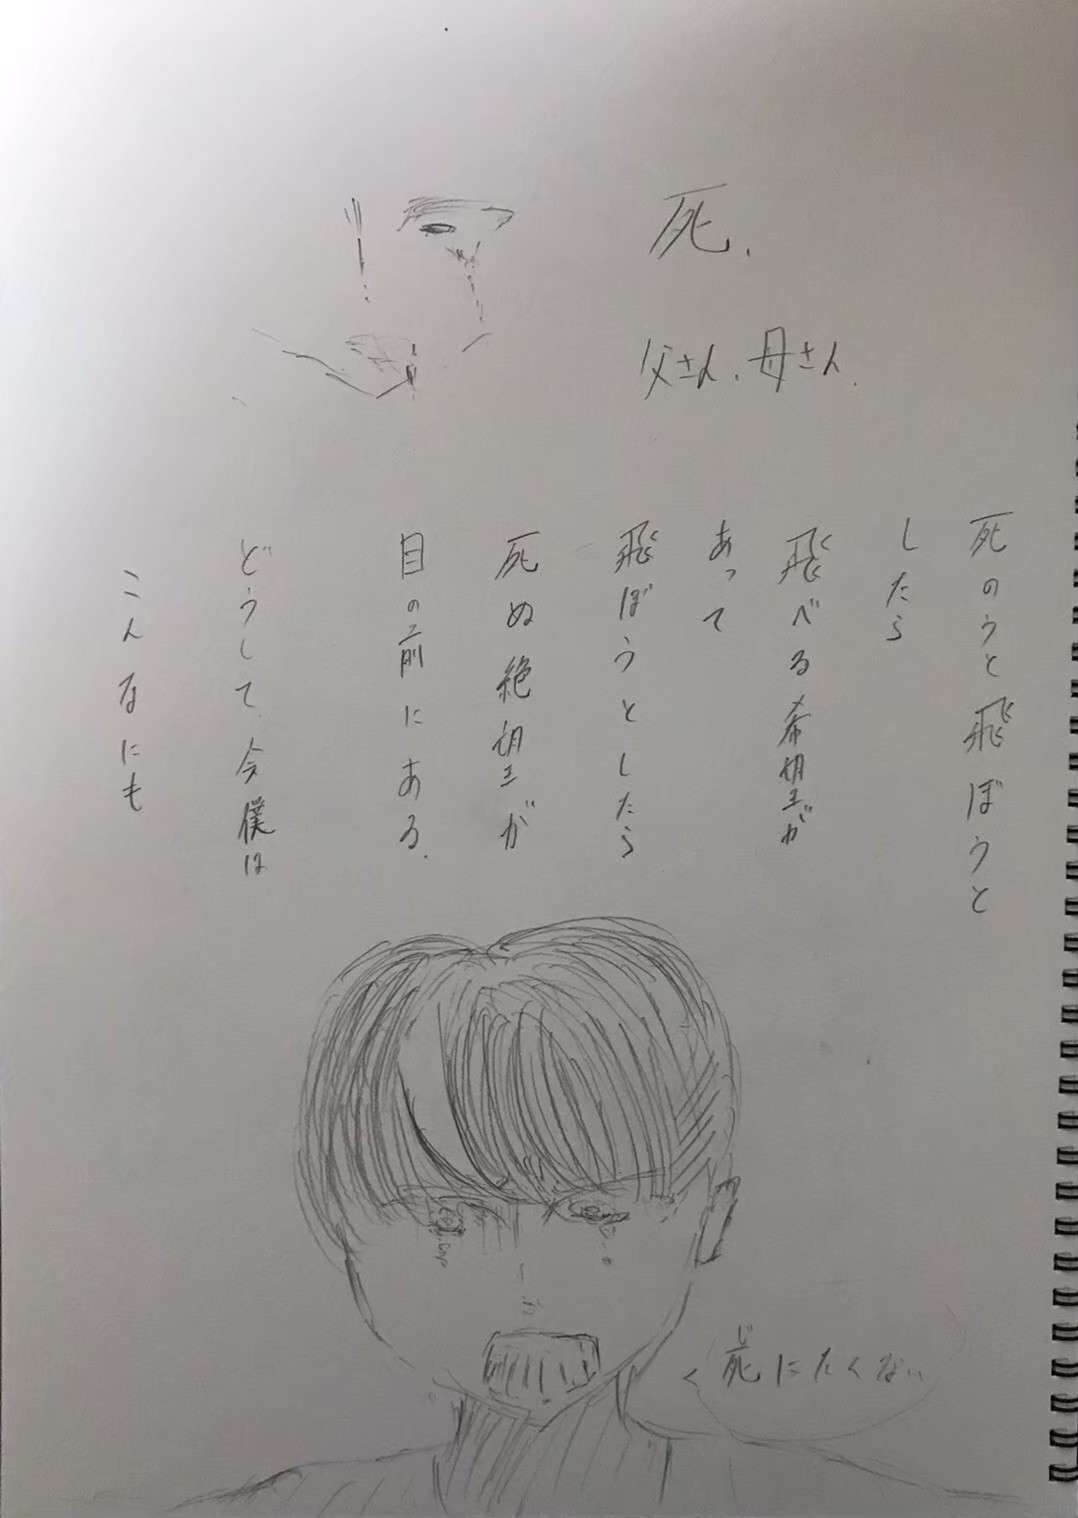 死、
父さん、母さん、
死のうと飛ぼうと
したら
飛べる希望が
あって
飛ぼうとしたら
死ぬ絶望が
目の前にある、
どうして、今僕は
こんなにも
死にたくない